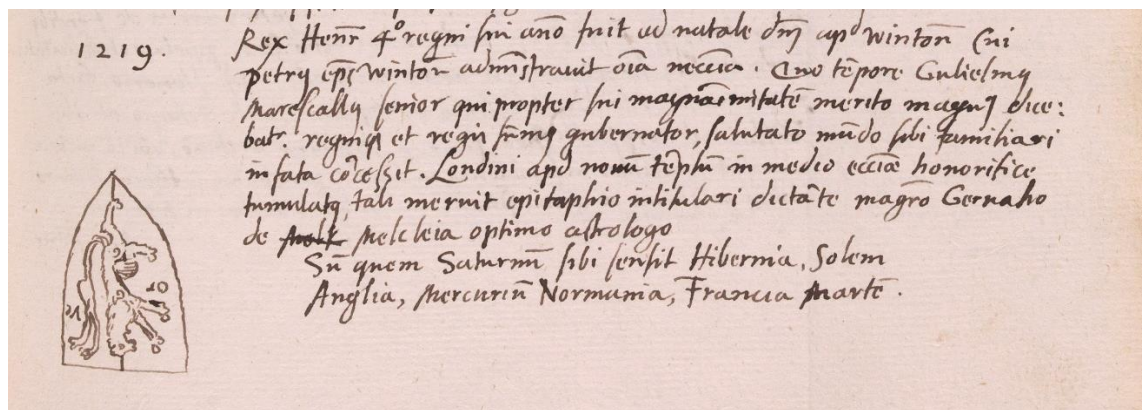 1219.
Rex Henr̄ 4º regni sui año fuit ad natale dñi apd wintoñ Cui
petrus ep̄s wintoñ administravit oīa neccīa. Quo tēpore Gulielmus
Marescallus senior qui propter sui magnanimitatē merito magnus dice:
batr. regnique et regis sum̄us gubernator, salutato mūdo sibi familiari
in fata cōcessit. Londini apd novū tēplum in medio eccīæ honorifice
tumulatus, tali meruit epitaphio intitulari dictāte magrō Gervasio
de Melcleia optimo astrologo
Sū quem Saturnū sibi sensit Hibernia, Solem
Anglia, Mercuriū Normania, Francia Martē.